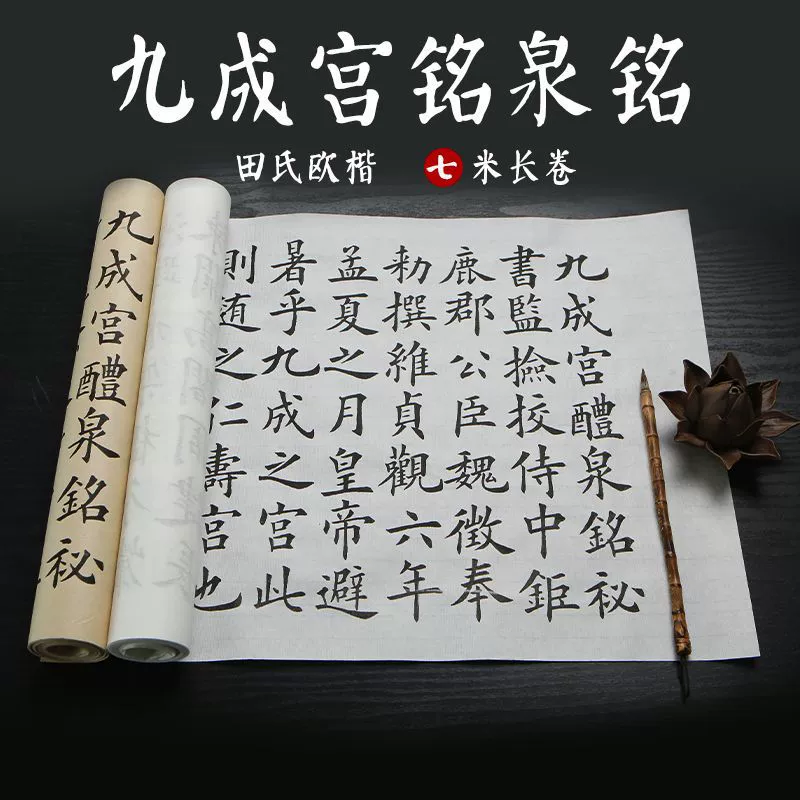 九成宫铭泉铭
田氏欧楷 七米长卷
九成宮醴泉銘祕
書監撿挍侍中鉅
鹿郡公臣魏徵奉
勑撰維貞觀六年
孟夏之月皇帝避
暑乎九成之宮此
則随之仁壽宮也
九成宮醴泉銘祕